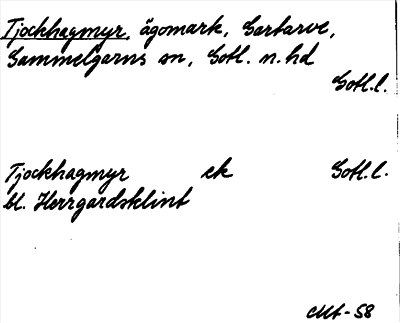 Tjockhagmyr, ägomark, Gartarve,
Gammelgarns sn, Gotl. n. hd
Gotl.l.
Tjockhagmyr ek Gotl.l.
bl. Herrgardsklint
-58